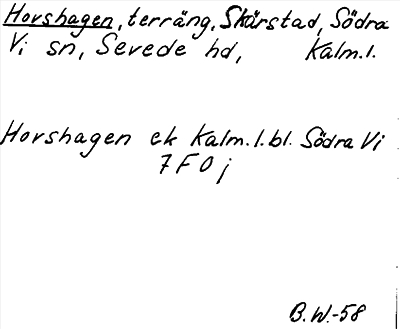 Horshagen, terräng, Skärstad, Södra
Vi sn, Sevede hd, Kalm.l.
Horshagen ek Kalm.l.bl. Södra Vi
7 F 0 j
B.W.-58